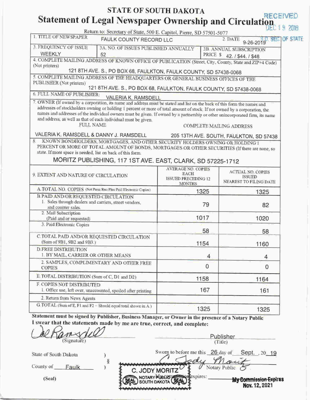 STATE OF SOUTH DAKOTA
Statement of Legal Newspaper Ownership and Circulation
RECEIVED
Return to: Secretary of State, 500 E. Capitol, Pierre, SD 57501-5077
1. TITLE OF NEWSPAPER FAULK COUNTY RECORD LLC
2. DATE 9-26-2019
3. FREQUENCY OF ISSUE WEEKLY
3A. NO. OF ISSUES PUBLISHED ANNUALLY
3B. ANNUAL SUBSCRIPTION PRICE $ 42. / $44. / $48.
4. COMPLETE MAILING ADDRESS OF KNOWN OFFICE OF PUBLICATION (Street, City, County, State and ZIP+4 Code) (Not printers)
121 8TH AVE. S., PO BOX 68, FAULKTON, FAULK COUNTY, SD 57438-0068
5. COMPLETE MAILING ADDRESS OF THE HEADQUARTERS OR GENERAL BUSINESS OFFICES OF THE PUBLISHER (Not printers)
121 8TH AVE. S., PO BOX 68, FAULKTON, FAULK COUNTY, SD 57438-0068
6. FULL NAME OF PUBLISHER: VALERIA K. RAMSDELL
7. OWNER (If owned by a corporation, its name and address must be stated and also immediately
FULL NAME
COMPLETE MAILING ADDRESS
VALERIA K. RAMSDELL & DANNY J. RAMSDELL
205 13TH AVE. SOUTH, FAULKTON, SD 57438
8. KNOWN BONDHOLDERS, MORTGAGES, AND OTHER SECURITY HOLDERS OWNING OR HOLDING 1 PERCENT OR MORE OF TOTAL AMOUNT OF BONDS, MORTGAGES OR OTHER SECURITIES (If there are none, so state. If more space is needed, list on back of this form.)
MORITZ PUBLISHING, 117 1ST AVE. EAST, CLARK, SD 57225-1712
9. EXTENT AND NATURE OF CIRCULATION
AVERAGE NO. COPIES EACH ISSUE PRECEDING 12 MONTHS
ACTUAL NO. COPIES ISSUED NEAREST TO FILING DATE
A. TOTAL NO. COPIES
1325 1325
B. PAID AND/OR REQUESTED CIRCULATION
1. Sales through dealers and carriers, street vendors, and counter sales.
79 82
2. Mail Subscription (Paid and/or requested)
1017 1020
3. Paid Electronic Copies
58 58
C. TOTAL PAID AND/OR REQUESTED CIRCULATION
(Sum of 9B1, 9B2 and 9B3)
1154 1160
D. FREE DISTRIBUTION
1. BY MAIL, CARRIER OR OTHER MEANS
4 4
2. SAMPLES, COMPLIMENTARY AND OTHER FREE COPIES
0 0
E. TOTAL DISTRIBUTION (Sum of C, D1 and D2)
1158 1164
F. COPIES NOT DISTRIBUTED
1. Office use, left over, unaccounted, spoiled after printing
167 161
2. Return from News Agents
G. TOTAL
1325 1325
Statement must be signed by Publisher, Business Manager, or Owner in the presence of a Notary Public
I swear that the statements made by me are true, correct, and complete:
(Signature)
Publisher
(Title)
State of South Dakota )
County of Faulk )
(Seal)
Sworn to before me this 26 day of Sept. 20 19
C. Jody Moritz
Notary Public
C. JODY MORITZ
NOTARY PUBLIC
SOUTH DAKOTA
My Commission Expires
Nov. 12, 2021